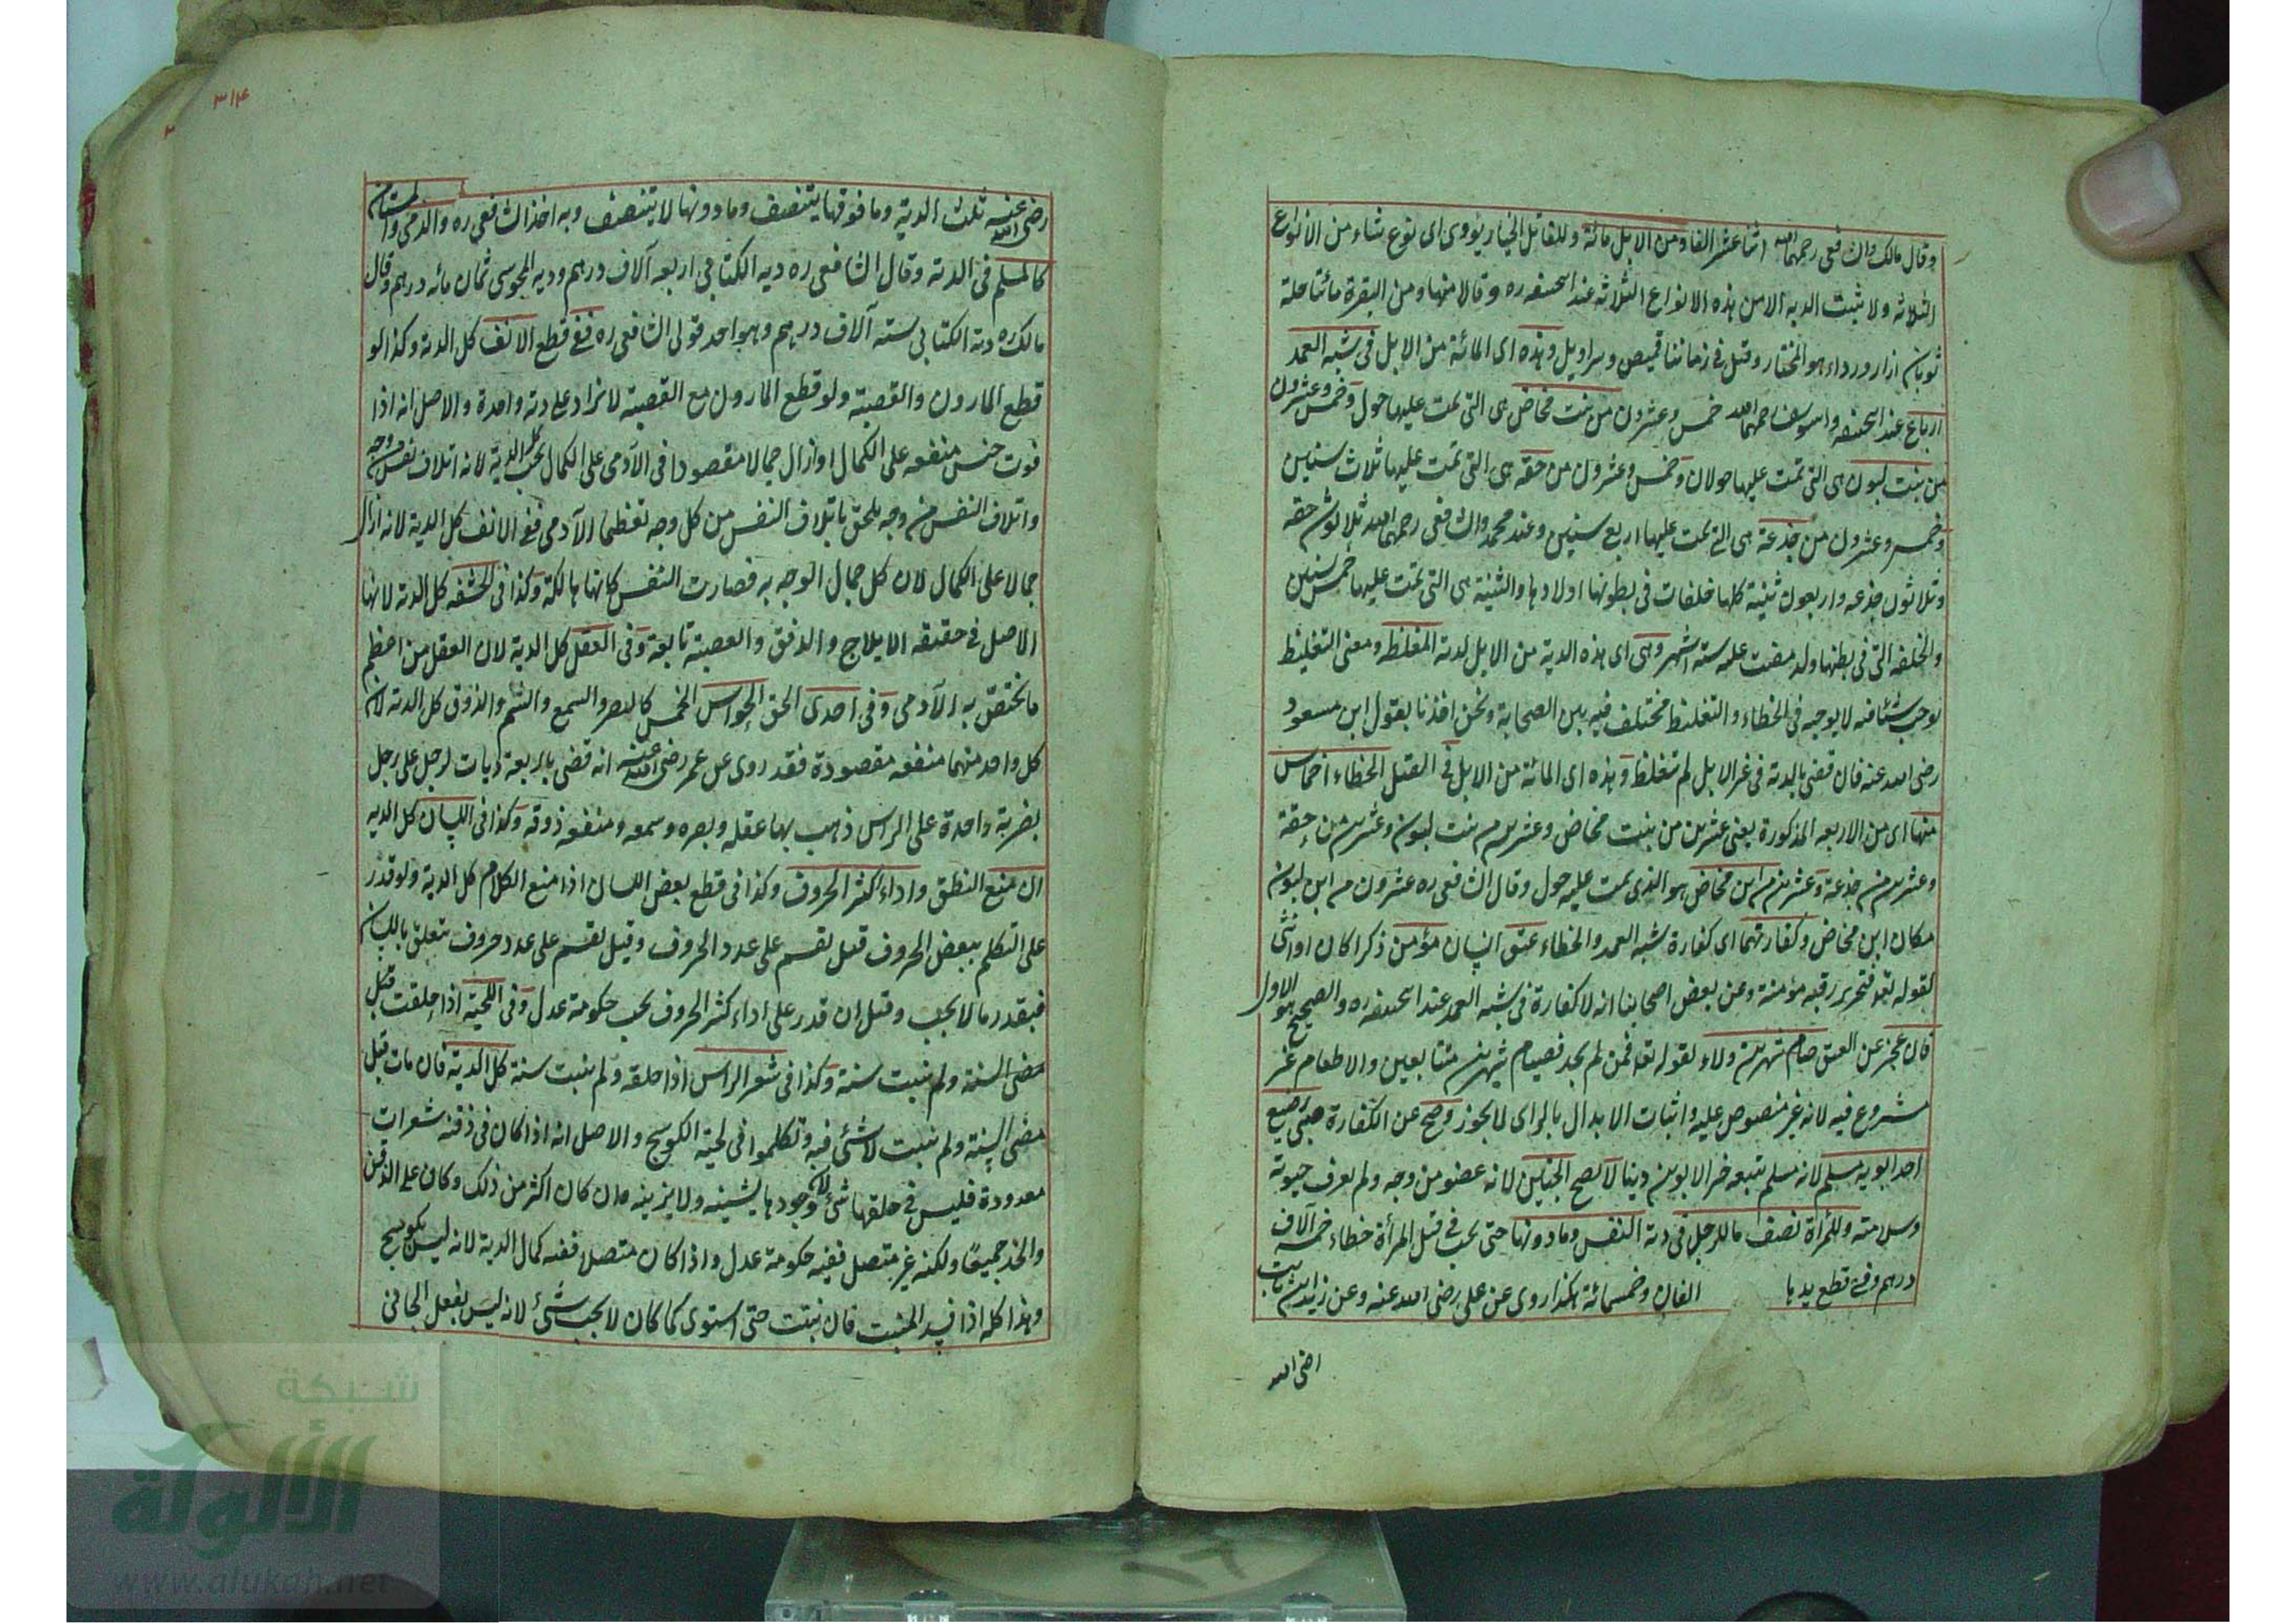 وقال مالك والشافعى رحمهما الله اثنا عشر الفا ومن الابل مائة وللقاتل الخيار يؤدى اى نوع شاء من الانواع
الثلاثه ولا يثبت الديه الا من هذه الانواع الثلاثه عند ابيحنيفه ره وقالا منها ومن البقرة مائتا حلة
ثوبان ازار ورداء هو المختار وقيل فى زماننا قميص وسراويل وهذه اى المائة من الابل فى شبه العمد
ارباع عند ابيحنيفه وابيوسف رحمهما الله خمس وعشرون من بنت مخاض هى التى تمت عليها حول وخمس وعشرون
من بنت لبون هى التى تمت عليها حولان وخمس وعشرون من حقه هى التى تمت عليها ثلاث سنين
وخمس وعشرون من جذعة هى التى تمت عليها اربع سنين وعند محمد والشافعى رحمهما الله ثلاثون حقه
وثلاثون جذعه واربعون ثنية كلها خلفات فى بطونها اولادها والثنية هى التى تمت عليها خمس سنين
والخلفه التى فى بطنها ولد مضت عليه ستة اشهر وهى اى هذه الدية من الابل لدية المغلظ ومعنى التغليظ
يوجب شيئا فيه لا يوجبه فى الخطاء والتغليظ مختلف فيه بين الصحابة ونحن اخذنا بقول ابن مسعود
رضى الله عنه فان قضى بالدية فى غير الابل لم تتغلظ وهذه اى المائة من الابل فى القتل الخطاء اخماس
منها اى من الاربعه المذكورة يعنى عشرين من بنت مخاض وعشرين من بنت لبون وعشرين من حقة
وعشرين من جذعة وعشرين من ابن مخاض هو الذى تمت عليه حول وقال الشافعى ره عشرون من ابن لبون
مكان ابن مخاض وكفارتهما اى كفارة شبه العمد والخطاء عتق انسان مؤمن ذكرا كان او انثى
لقوله تعه فتحرير رقبه مؤمنة وعن بعض اصحابنا انه لا كفارة فى شبه العمد عند ابيحنيفه ره والصحيح هو الاول
فان عجز عن العتق صام شهرين ولاء لقوله تعه فمن لم يجد فصيام شهرين متتابعين والاطعام غير
مشروع فيه لانه غير منصوص عليه واثبات الابدال بالراى لا يجوز وصح عن الكفارة صبى رضيع
احد ابويه مسلم لانه مسلم يتبعه خير الابوين دينا لا يصح الجنين لانه عضو من وجه ولم يعرف حيوته
وسلامته وللمرأة نصف ما للرجل فى دية النفس وما دونها حتى يجب فى قتل المرأة خطاء خمسه آلاف
درهم وفى قطع يدها الفان وخمسمائة هكذا روى عن على رضى الله عنه وعن زيد ابن ثابت
رضى الله
٣١٤
رضى الله عنه ثلث الدية وما فوقها يتنصف وما دونها لا يتنصف وبه اخذ الشافعى ره والذمى والمستامن
كالمسلم فى الدية وقال الشافعى ره دية الكتابى اربعه آلاف درهم وديه المجوسى ثمان مائه درهم وقال
مالك ره دية الكتابى ستة آلاف درهم وهو احد قولى الشافعى ره ففى قطع الانف كل الدية وكذا لو
قطع المارون والقصبة ولو قطع المارون مع القصبة لا تزاد على دية واحدة والاصل انه اذا
فوت جنس منفعه على الكمال او ازال جمالا مقصودا فى الآدمى على الكمال يجب كل الدية لانه اتلاف نفس من وجه
واتلاف النفس من وجه يلحق باتلاف النفس من كل وجه تعظيما للآدمى ففى الانف كل الدية لانه ازال
جمالا على الكمال لان كل جمال الوجه به فصارت النفس كانها هالكة وكذا فى الحشفه كل الدية لانها
الاصل فى حقيقه الايلاج والدفق والقصبة تابعة وفى العقل كل الدية لان العقل من اعظم
ما يختص به الآدمى وفى احدى الحق الحواس الخمس كالبصر والسمع والشم والذوق كل الدية لان
كل واحد منهما منفعه مقصودة فقد روى عن عمر رضى الله عنه انه قضى باربعة ديات لرجل على رجل
بضربة واحدة على الراس ذهب بها عقله وبصره وسمعه ومنفعه ذوقه وكذا فى اللسان كل الديه
ان منع النطق واداء اكثر الحروف وكذا فى قطع بعض اللسان اذا منع الكلام كل الدية ولو قدر
على التكلم ببعض الحروف قيل يقسم على عدد الحروف وقيل يقسم على عدد حروف تتعلق باللسان
فبقدر ما لا يجب وقيل ان قدر على اداء اكثر الحروف يجب حكومة عدل وفى اللحية اذا حلقت قبل
مضى السنة ولم ينبت سنة وكذا فى شعر الراس اذا حلقه ولم ينبت سنة كل الدية فان مات قبل
مضى السنة ولم ينبت لا شئ فيه وتكلموا فى لحية الكوسج والاصل انه اذا كان فى ذقنه شعرات
معدودة فليس فى حلقها شئ لان وجودها يشينه ولا يزينه وان كان اكثر من ذلك وكان على الذقن
والخد جميعا ولكنه غير متصل ففيه حكومة عدل واذا كان متصلا ففيه كمال الدية لانه ليس بكوسج
وهذا كله اذا فسد المنبت فان نبتت حتى استوى كما كان لا يجب شئ لانه ليس بفعل الجانى
شبكة
الألوكة
www.alukah.net